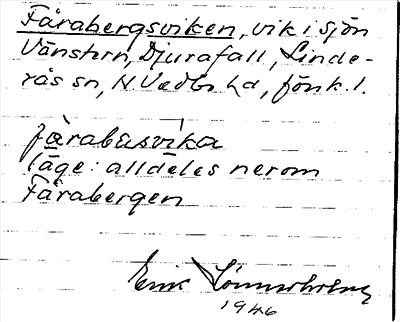 Fårabergsviken, vik i sjön
Vänstern, Djurafall, Linde-
rås sn, N. Vedbo hd, Jönk. l.
fårabasvika
läge: alldeles nerom
Fårabergen
Erik
1946